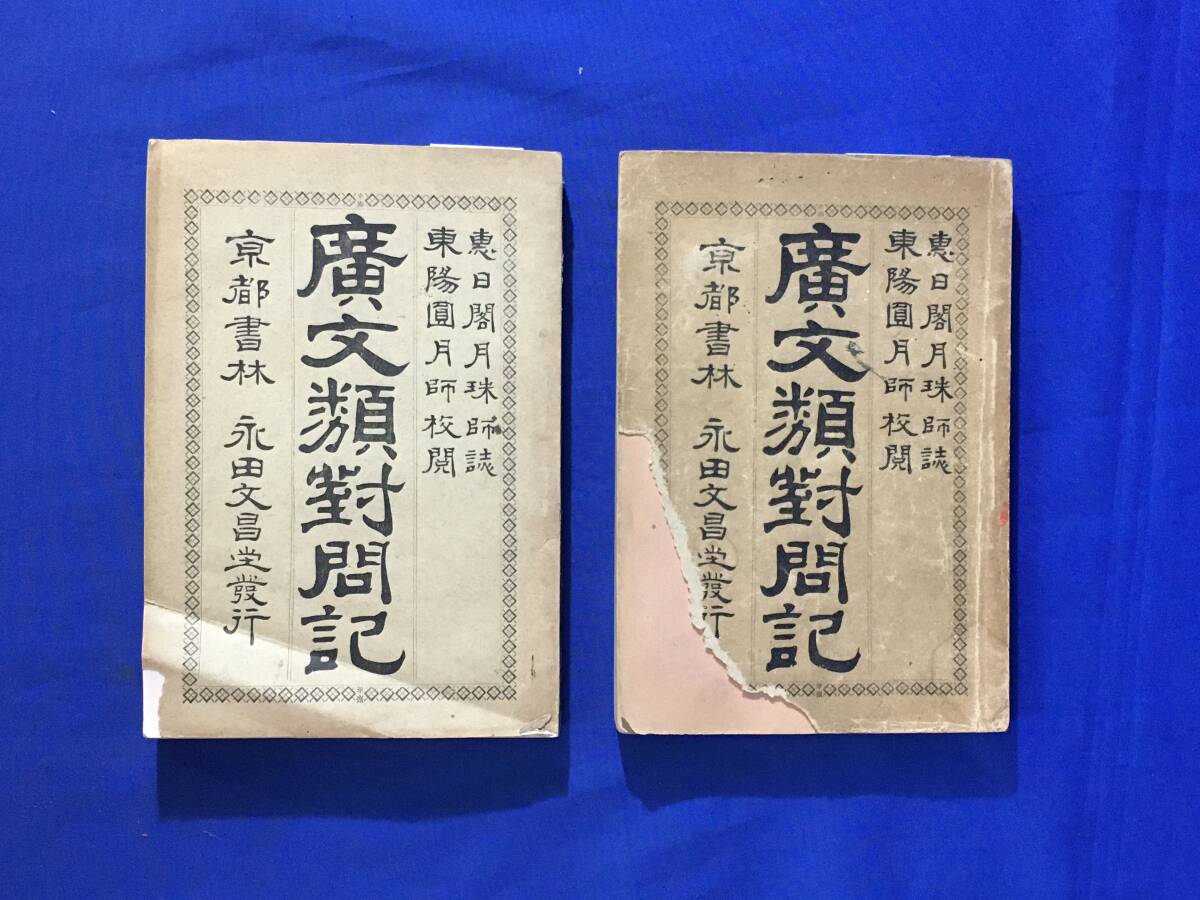 惠日閣月珠師誌
東陽圓月師校閲
廣文類對問記
京都書林 永田文昌堂發行
惠日閣月珠師誌
東陽圓月師校閲
廣文類對問記
京都書林 永田文昌堂發行